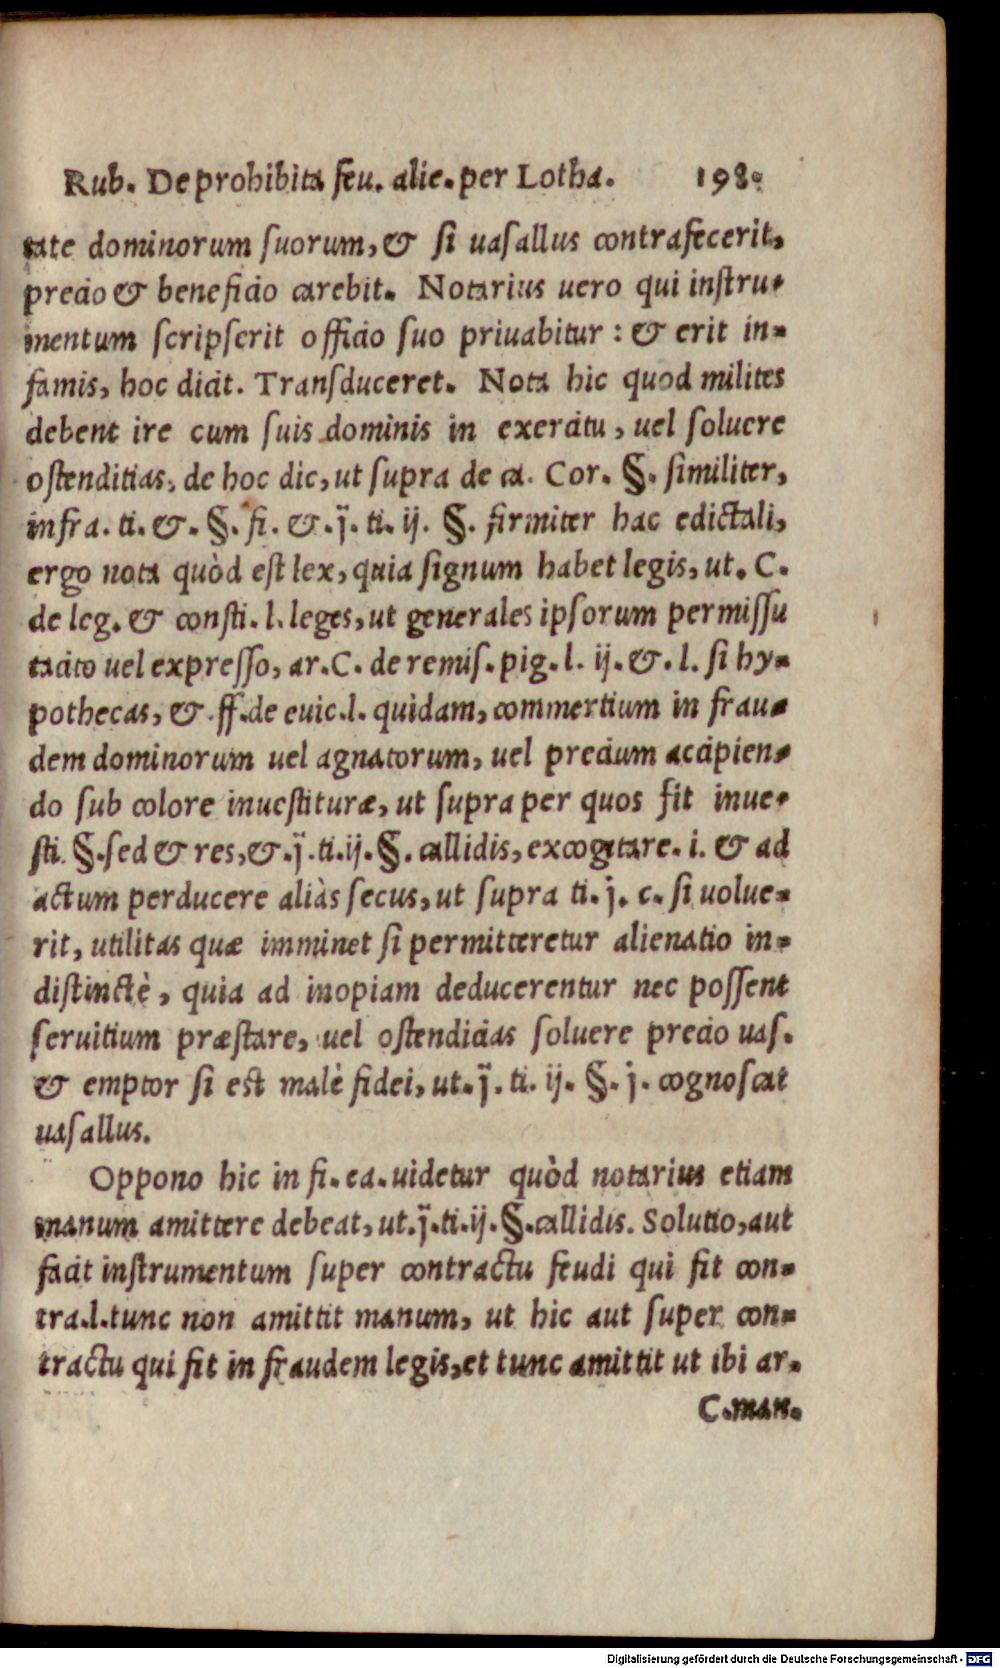 Rub. De prohibita feu. alie. per Lotha. 198.
tate dominorum suorum, & si uasallus contrafecerit,
precio & beneficio carebit. Notarius uero qui instru-
mentum scripserit officio suo priuabitur : & erit in-
famis, hoc dicit. Transduceret. Nota hic quod milites
debent ire cum suis dominis in exercitu, uel soluere
ostenditias, de hoc dic, ut supra de ca. Cor. §. similiter,
infra. ti. &. §. fi. &. j̈. ti. ij. §. firmiter hac edictali,
ergo nota quòd est lex, quia signum habet legis, ut. C.
de leg. & consti. l. leges, ut generales ipsorum permissu
tacito uel expresso, ar. C. de remis. pig. l. ij. &. l. si hy-
pothecas, &. ff. de euic. l. quidam, commertium in frau-
dem dominorum uel agnatorum, uel precium accipien-
do sub colore inuestituræ, ut supra per quos fit inue-
sti. §. sed & res, &. j̈. ti. ij. §. callidis, excogitare. i. & ad
actum perducere aliàs secus, ut supra ti. j. c. si uolue-
rit, utilitas quæ imminet si permitteretur alienatio in-
distinctè, quia ad inopiam deducerentur nec possent
seruitium præstare, uel ostendicias soluere precio uas.
& emptor si est malè fidei, ut. j̈. ti. ij. §. j. cognoscat
uasallus.
Oppono hic in fi. ea. uidetur quòd notarius etiam
manum amittere debeat, ut. j̈. ti. ij. §. callidis. Solutio, aut
facit instrumentum super contractu feudi qui fit con-
tra. l. tunc non amittit manum, ut hic aut super con-
tractu qui fit in fraudem legis, et tunc amittit ut ibi ar.
C. man.
Digitalisierung gefördert durch die Deutsche Forschungsgemeinschaft - DFG